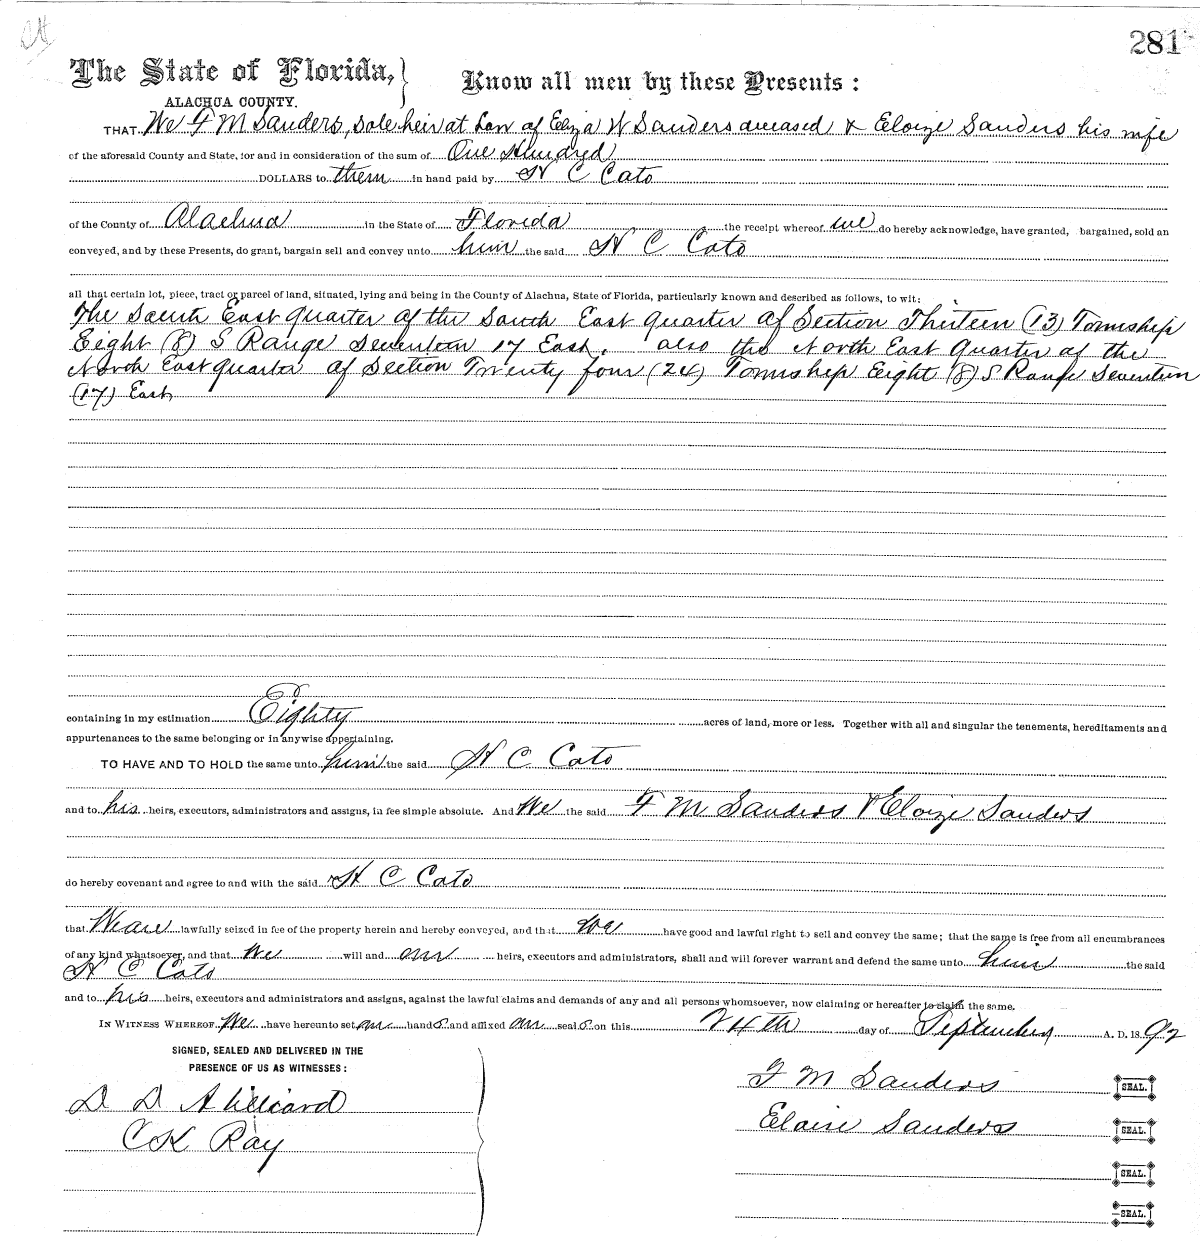 281
The State of Florida, Know all men by these Presents:
ALACHUA COUNTY.
THAT We F M Sanders, Sole heir at Law of Eliza W Sanders deceased & Eloize Sanders his wife
of the aforesaid County and State, for and in consideration of the sum of One Hundred
DOLLARS to them in hand paid by H C Cato
of the County of Alachua in the State of Florida the receipt whereof we do hereby acknowledge, have granted, bargained, sold an
conveyed, and by these Presents, do grant, bargain sell and convey unto him the said H C Cato
all that certain lot, piece, tract or parcel of land, situated, lying and being in the County of Alachua, State of Florida, particularly known and described as follows, to wit:
The South East quarter of the South East quarter of Section Thirteen (13) Township
Eight (8) S Range Seventeen 17 East, also the North East Quarter of the
North East quarter of Section Twenty four (24) Township Eight (8) S Range Seventeen
(17) East
containing in my estimation Eighty acres of land, more or less. Together with all and singular the tenements, hereditaments and
appurtenances to the same belonging or in anywise appertaining.
TO HAVE AND TO HOLD the same unto him the said H C Cato
and to his heirs, executors, administrators and assigns, in fee simple absolute. And We the said F M Sanders & Eloize Sanders
do hereby covenant and agree to and with the said H C Cato
that We are lawfully seized in fee of the property herein and hereby conveyed, and that we have good and lawful right to sell and convey the same; that the same is free from all encumbrances
of any kind whatsoever, and that We will and our heirs, executors and administrators, shall and will forever warrant and defend the same unto him the said
H C Cato
and to his heirs, executors and administrators and assigns, against the lawful claims and demands of any and all persons whomsoever, now claiming or hereafter to claim the same.
IN WITNESS WHEREOF We have hereunto set our hands and affixed our seals on this 24th day of September A. D. 1892
SIGNED, SEALED AND DELIVERED IN THE
PRESENCE OF US AS WITNESSES:
F M Sanders SEAL.
D D
Eloise Sanders SEAL.
C K Ray
SEAL.
SEAL.